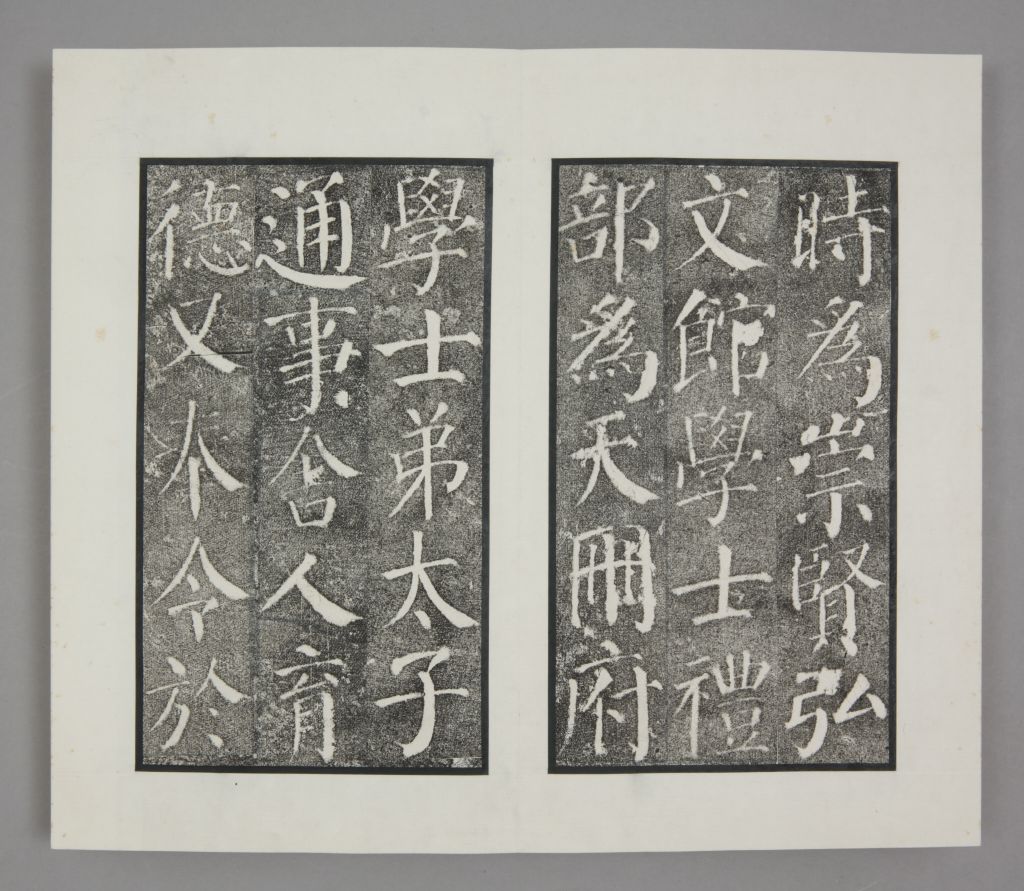 時爲崇賢弘
文館學士禮
部爲天冊府
學士弟太子
通事舍人育
德又奉令於